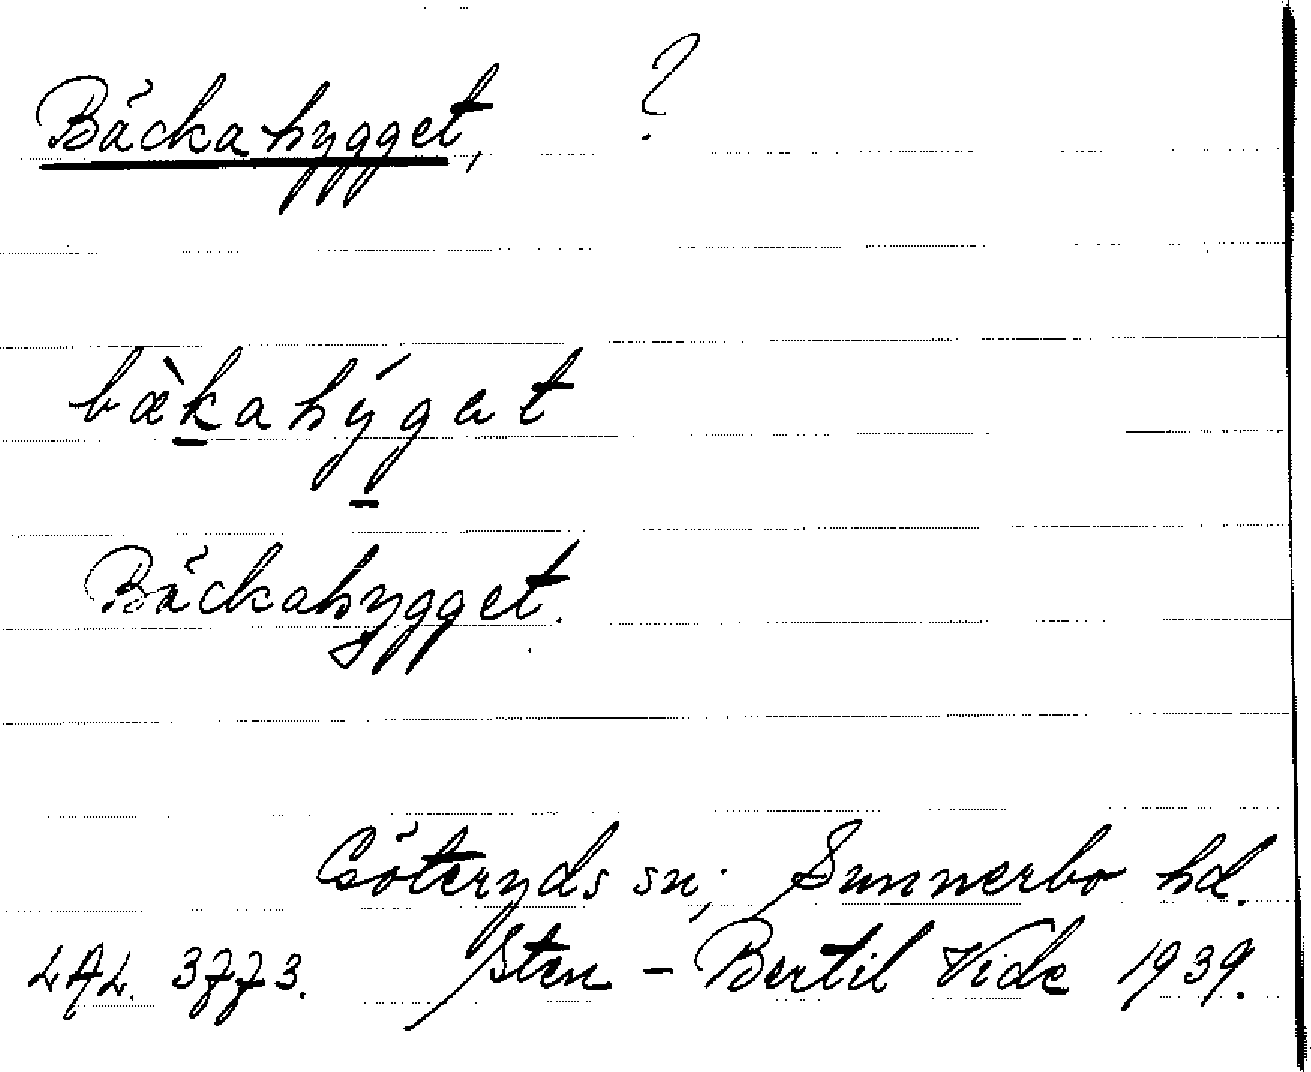 Bäckahygget, ?
bæ̀kahýgat
Bäckahygget.
Göteryds sn; Sunnerbo hd.
LAL. 3773. Sten-Bertil Vide 1939.